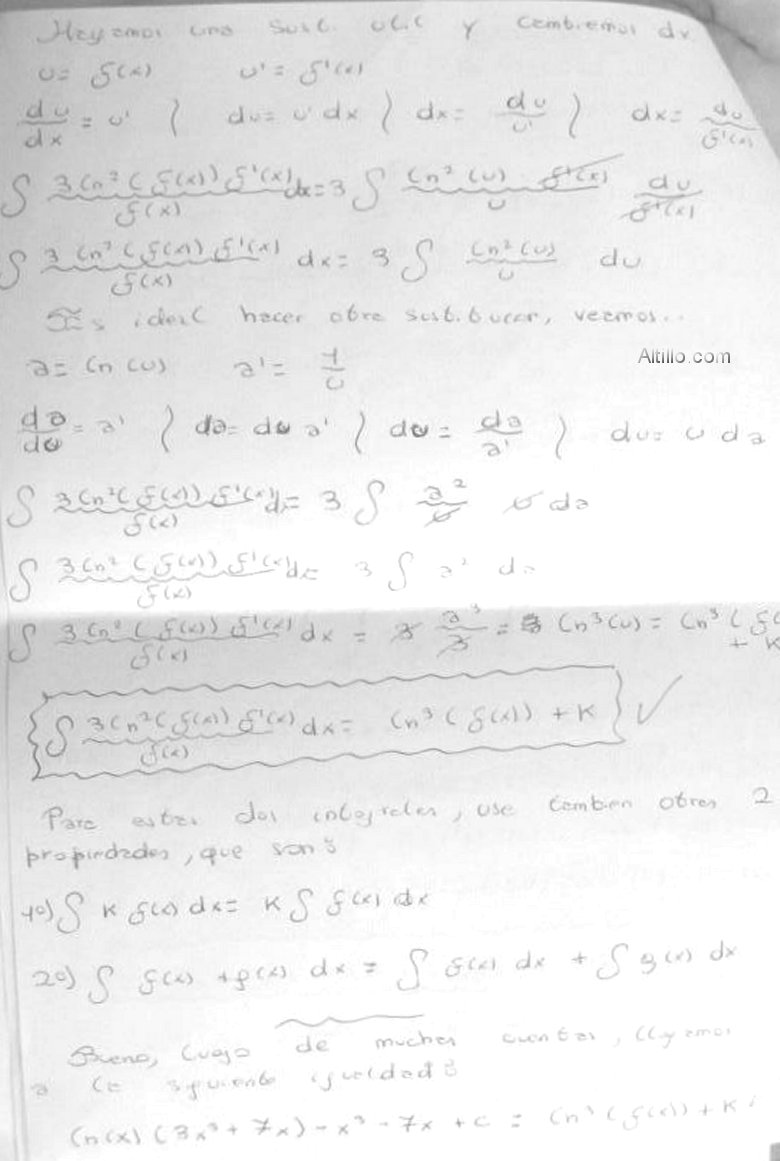 Hagamos una sust. y cambiemos dx
u = f(x) u' = f'(x)
du/dx = u' } du = u' dx } dx = du/u' } dx = du/f'(x)
∫ 3 ln²(f(x)) f'(x)/f(x) dx = 3 ∫ ln²(u) f'(x)/u du/f'(x)
∫ 3 ln²(f(x)) f'(x)/f(x) dx = 3 ∫ ln²(u)/u du
Es ideal hacer otra sustitucion, veamos..
a = ln(u) a' = 1/u
Altillo.com
da/du = a' } da = du a' } du = da/a' } du = u da
∫ 3 ln²(f(x)) f'(x)/f(x) dx = 3 ∫ a²/u u da
∫ 3 ln²(f(x)) f'(x)/f(x) dx = 3 ∫ a² da
∫ 3 ln²(f(x)) f'(x)/f(x) dx = 3 a³/3 = ln³(u) = ln³(f(
+ K
∫ 3 ln²(f(x)) f'(x)/f(x) dx = ln³(f(x)) + K ✓
Para estas dos integrales, use tambien otras 2
propiedades, que son:
1º) ∫ K f(x) dx = K ∫ f(x) dx
2º) ∫ f(x) + g(x) dx = ∫ f(x) dx + ∫ g(x) dx
Bueno, luego de muchas cuentas, llegamos
a la siguiente igualdad:
ln(x) (3x³ + 7x) - x³ - 7x + c = ln³(f(x)) + K